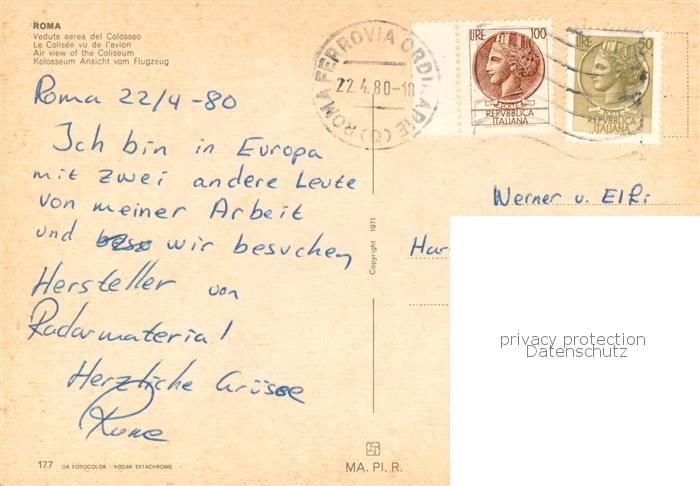 ROMA
Veduta aerea del Colosseo
Le Colisée vu de l'avion
Air view of the Coliseum
Kolosseum Ansicht vom Flugzeug
ROMA FERROVIA ORDINARIE (6)
22.4.80-18
LIRE 100
POSTE
REPVBBLICA
ITALIANA
LIRE 50
POSTE
REPVBBLICA
ITALIANA
Roma 22/4-80
Ich bin in Europa
mit zwei andere Leute
von meiner Arbeit
und wir besuchen
Hersteller von
Radarmaterial
Herzliche Grüsse
Rune
Werner u. Elfi
Har
Copyright 1971
privacy protection
Datenschutz
177 DA FOTOCOLOR - KODAK EKTACHROME
MA. PI. R.